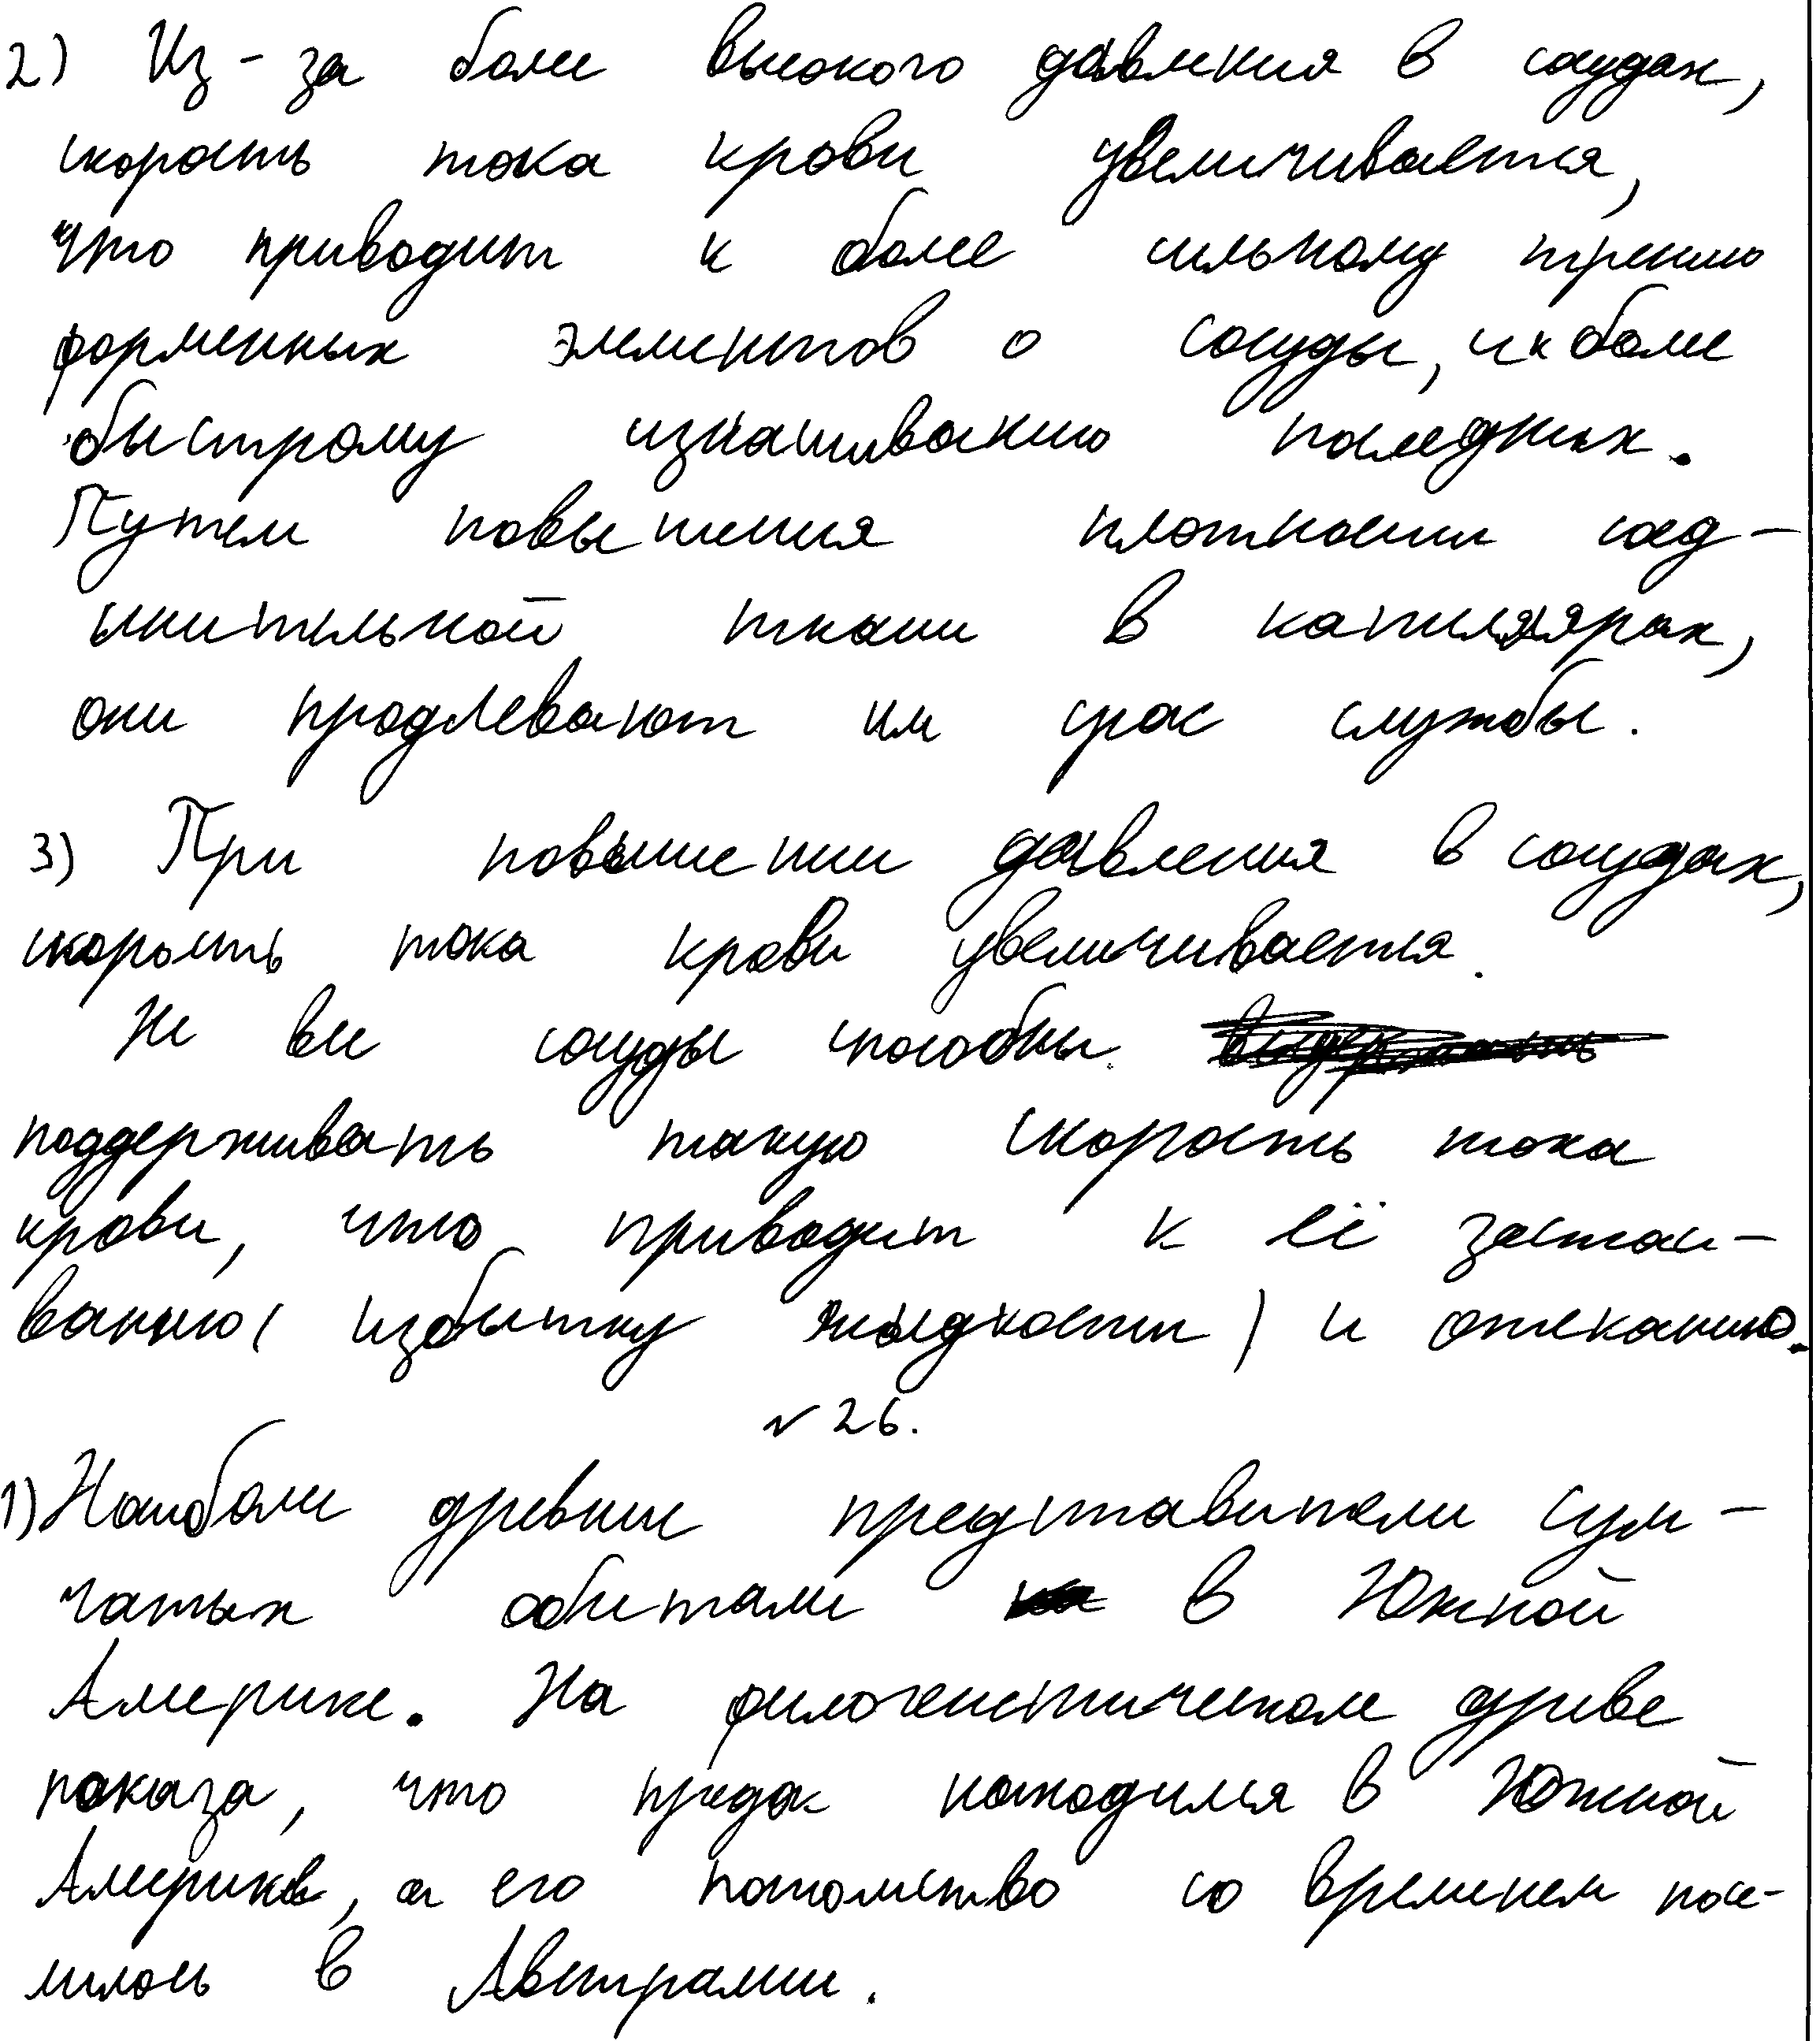 2) Из-за более высокого давления в сосудах,
скорость тока крови увеличивается,
что приводит к более сильному трению
форменных элементов о сосуды, и к более
быстрому изнашиванию последних.
Путем повышения плотности соед-
инительной ткани в капиллярах,
они продлевают им срок службы.
3) При повышении давления в сосудах,
скорость тока крови увеличивается.
Не все сосуды способны
поддерживать такую скорость тока
крови, что приводит к её застаи-
ванию (избытку жидкости) и отеканию.
№ 26.
1) Наиболее древние представители сум-
чатых обитали в Южной
Америке. На филогенетическом древе
показа, что предок находился в Южной
Америке, а его потомство со временем посе-
лилось в Австралии.